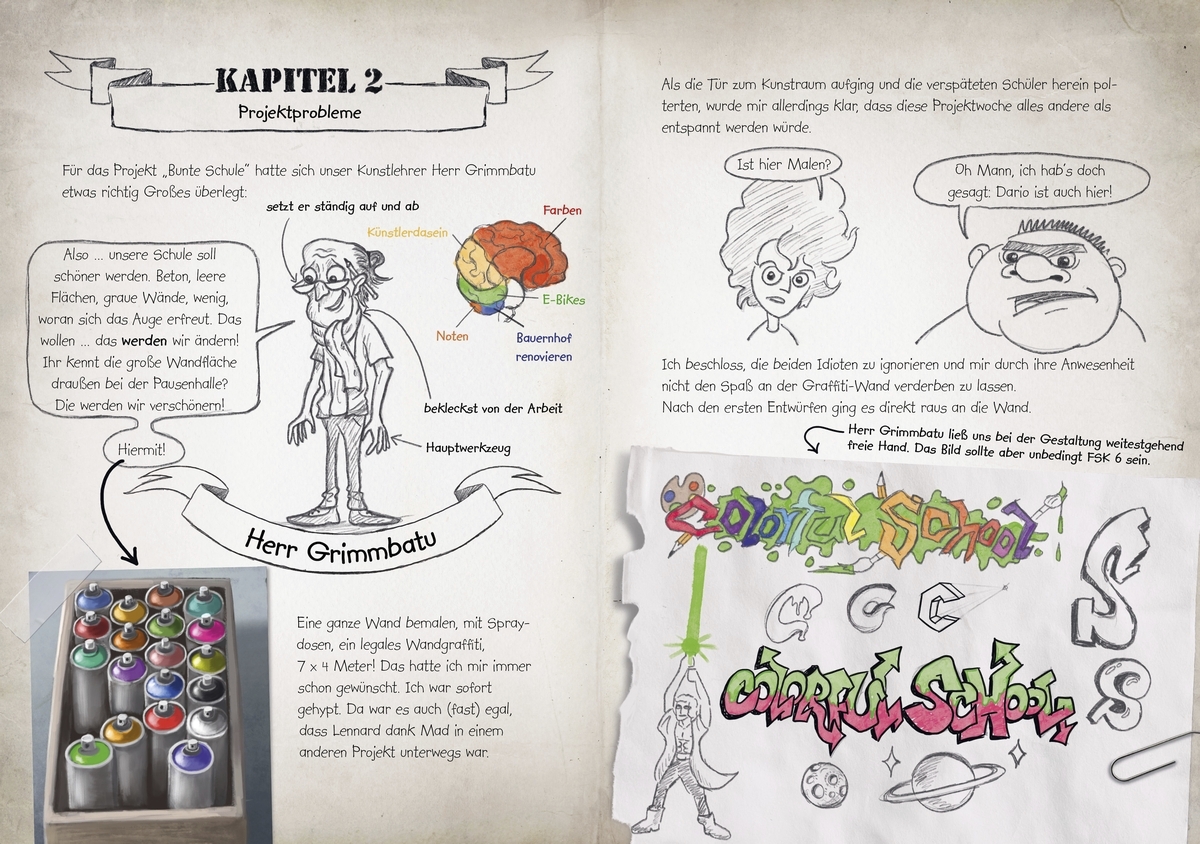 KAPITEL 2
Projektprobleme
Für das Projekt „Bunte Schule“ hatte sich unser Kunstlehrer Herr Grimmbatu
etwas richtig Großes überlegt:
setzt er ständig auf und ab
Farben
Künstlerdasein
E-Bikes
Noten
Bauernhof
renovieren
Also ... unsere Schule soll
schöner werden. Beton, leere
Flächen, graue Wände, wenig,
woran sich das Auge erfreut. Das
wollen ... das werden wir ändern!
Ihr kennt die große Wandfläche
draußen bei der Pausenhalle?
Die werden wir verschönern!
Hiermit!
bekleckst von der Arbeit
Hauptwerkzeug
Herr Grimmbatu
Eine ganze Wand bemalen, mit Spray-
dosen, ein legales Wandgraffiti,
7 x 4 Meter! Das hatte ich mir immer
schon gewünscht. Ich war sofort
gehypt. Da war es auch (fast) egal,
dass Lennard dank Mad in einem
anderen Projekt unterwegs war.
Als die Tür zum Kunstraum aufging und die verspäteten Schüler herein pol-
terten, wurde mir allerdings klar, dass diese Projektwoche alles andere als
entspannt werden würde.
Ist hier Malen?
Oh Mann, ich hab's doch
gesagt: Dario ist auch hier!
Ich beschloss, die beiden Idioten zu ignorieren und mir durch ihre Anwesenheit
nicht den Spaß an der Graffiti-Wand verderben zu lassen.
Nach den ersten Entwürfen ging es direkt raus an die Wand.
Herr Grimmbatu ließ uns bei der Gestaltung weitestgehend
freie Hand. Das Bild sollte aber unbedingt FSK 6 sein.
Colorful School
C C C
S
COLORFUL SCHOOL
S